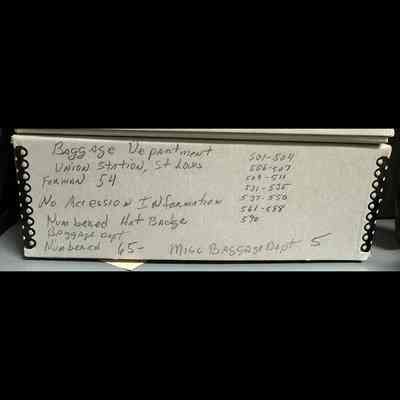 Baggage Department
Union Station, St Louis
Forman 54
No Accession Information
Numbered Hat Badge
Baggage Dept
Numbered 65-
Misc Baggage Dept 5
501-504
506-507
509-511
531-535
537-550
561-588
590